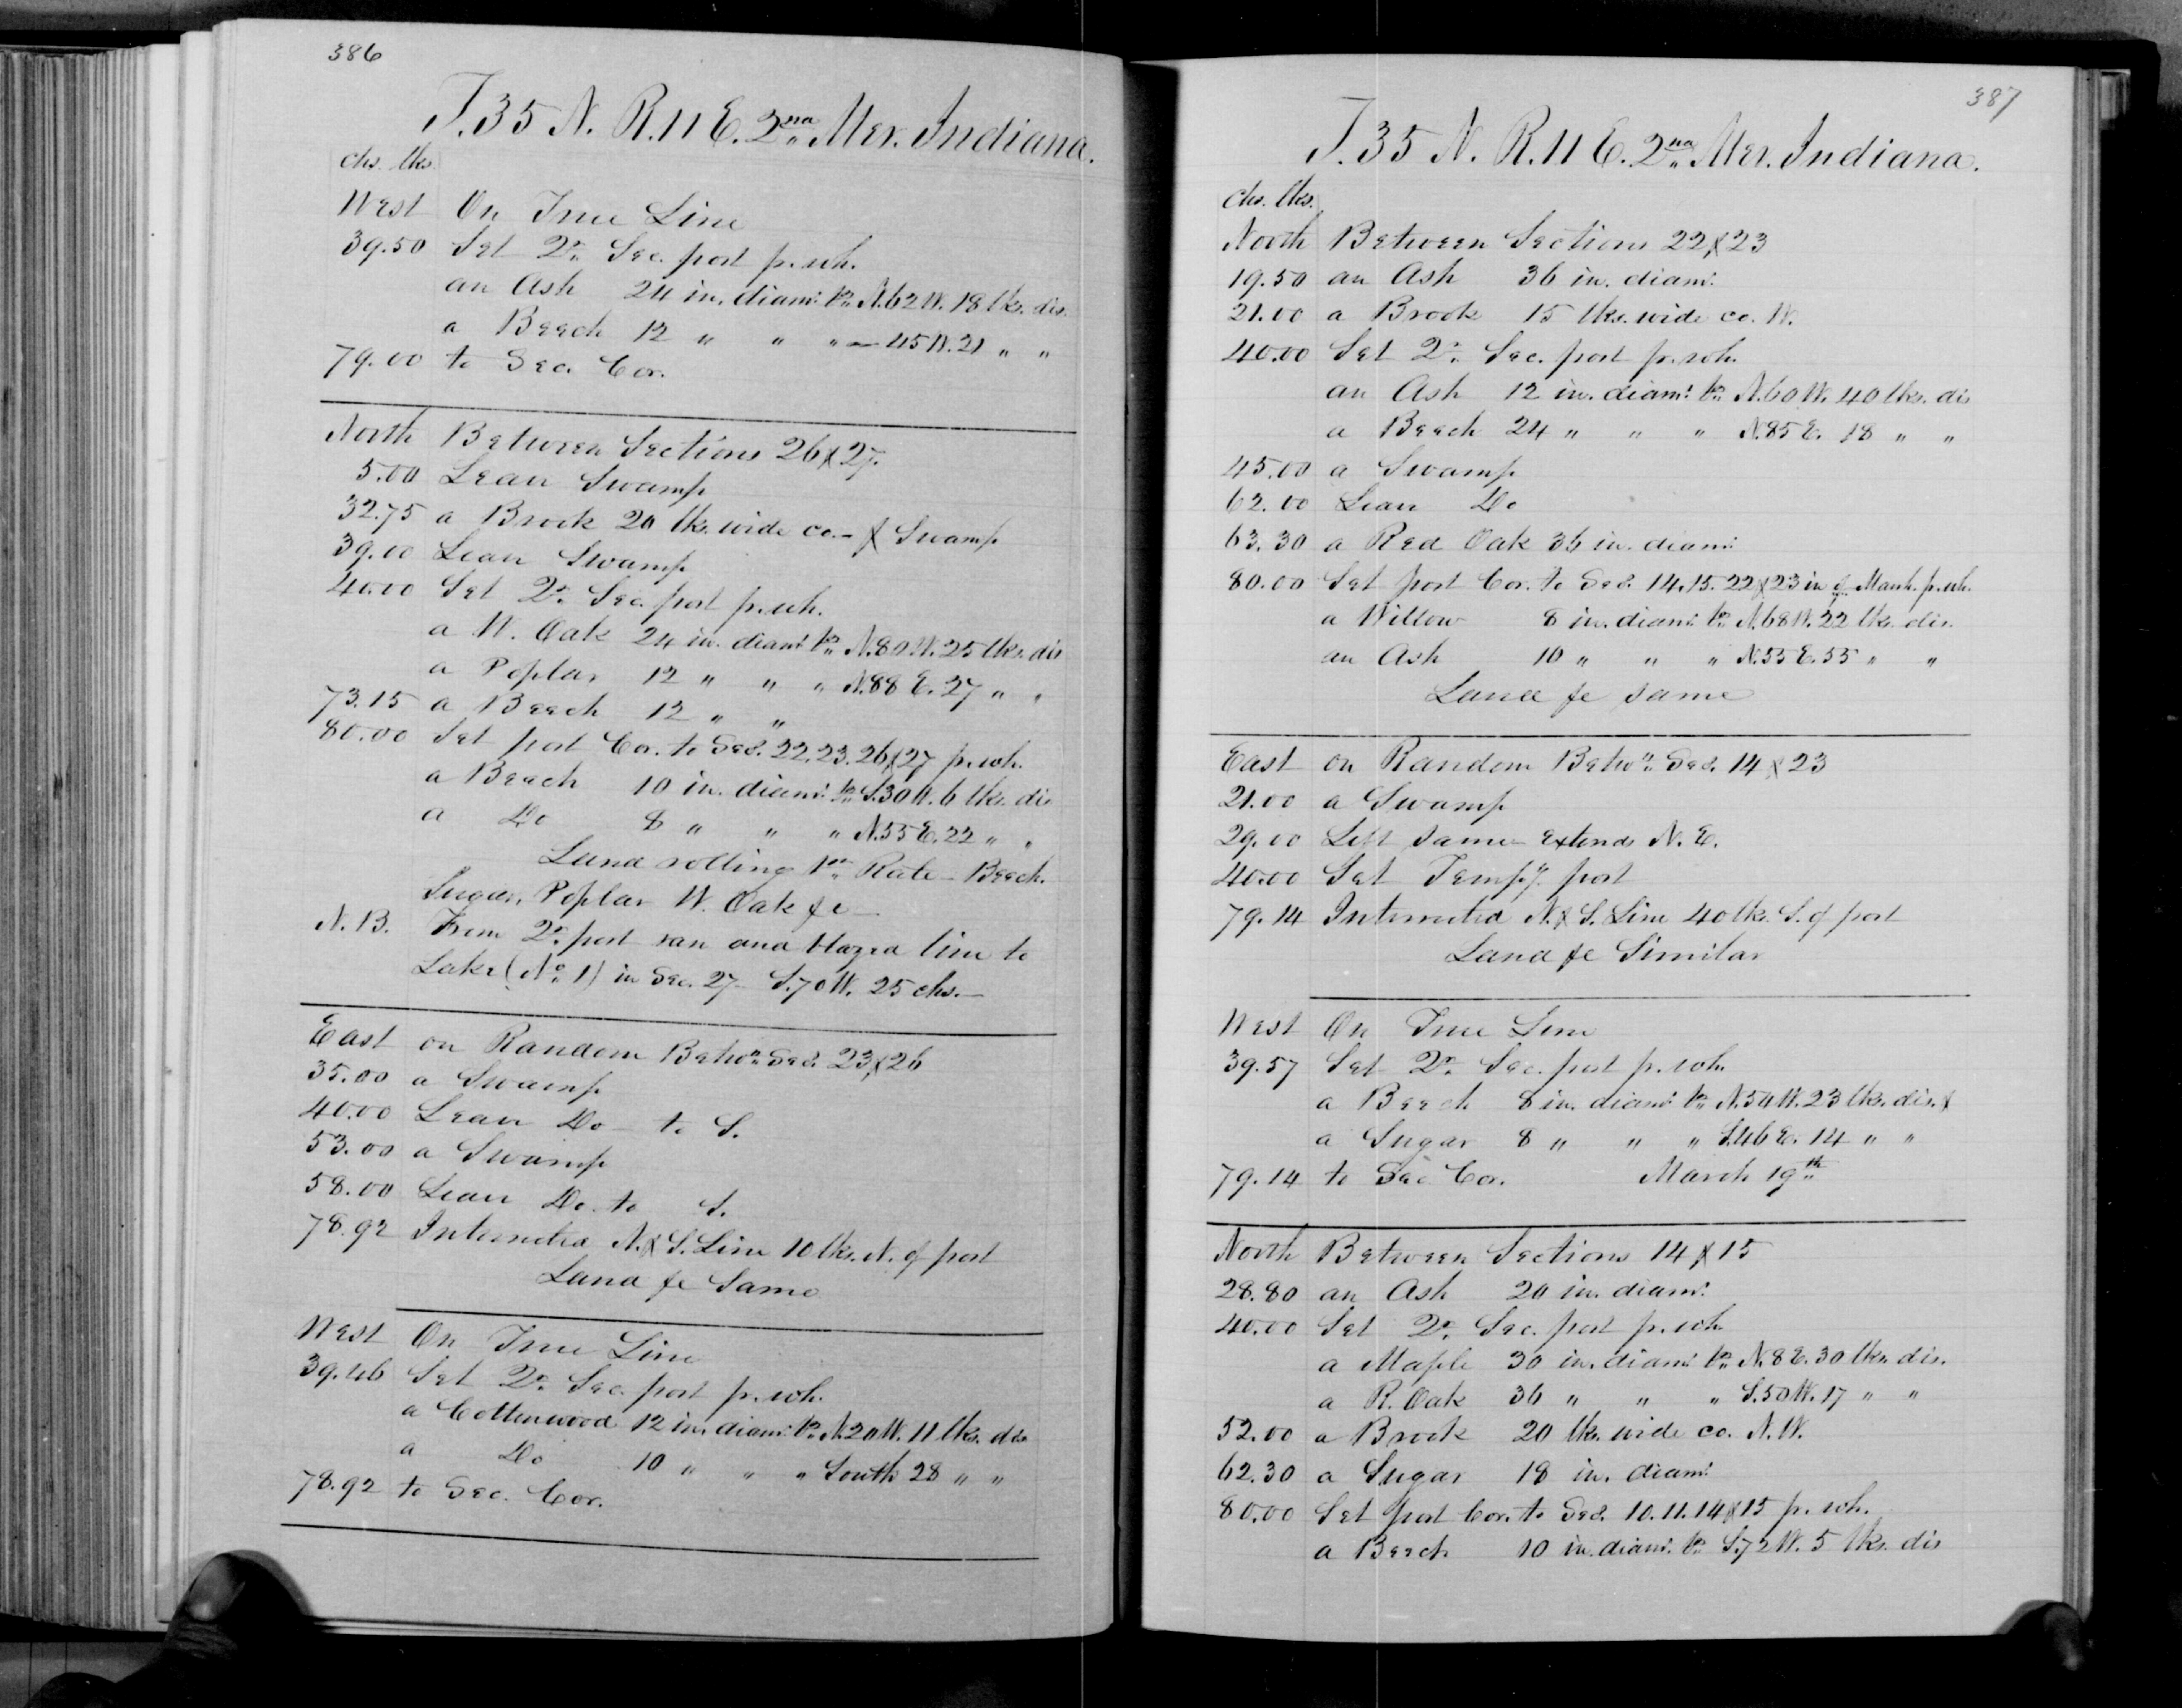 386
T. 35 N. R. 11 E. 2nd Mer. Indiana.
chs. lks.
West On True Line
39.50 Set Qr. Sec. post fr. wh.
an Ash 24 in. diamr. brs. N. 62 W. 18 lks. dis.
a Beech 12 " " " — 45 W. 21 " "
79.00 to Sec. Cor.
North Between Sections 26 & 27.
5.00 Leav Swamp
32.75 a Brook 20 lks. wide co. — & Swamp
39.00 Leav Swamp
40.00 Set Qr. Sec. post fr. wh.
a W. Oak 24 in. diamr. brs. N. 80 W. 25 lks. dis
a Poplar 12 " " " N. 88 E. 27 " "
73.15 a Beech 12 " "
80.00 Set post Cor. to Secs. 22. 23. 26 & 27 fr. wh.
a Beech 10 in. diamr. brs. S. 30 W. 6 lks. dis
a Do 8 " " " N. 55 E. 22 " "
Land rolling 1st Rate — Beech.
Sugar, Poplar W. Oak &c —
N. B. From Qr. post ran and blazed line to
Lake (No. 1) in Sec. 27 — S. 70 W. 25 chs. —
East on Random Betwn. Secs. 23 & 26
35.00 a Swamp
40.00 Leav Do — to S.
53.00 a Swamp
58.00 Leav Do. to S.
78.92 Intersected N. & S. Line 10 lks. N. of post
Land &c Same
West On True Line
39.46 Set Qr. Sec. post fr. wh.
a Cottenwood 12 in. diamr. brs. N. 20 W. 11 lks. dis
a Do 10 " " " South 28 " "
78.92 to Sec. Cor.
387
T. 35 N. R. 11 E. 2nd Mer. Indiana.
chs. lks.
North Between Sections 22 & 23
19.50 an Ash 36 in. diamr.
21.00 a Brook 15 lks. wide co. W.
40.00 Set Qr. Sec. post fr. wh.
an Ash 12 in. diamr. brs. N. 60 W. 40 lks. dis
a Beech 24 " " " N. 85 E. 18 " "
45.00 a Swamp
62.00 Leav Do
63.30 a Red Oak 36 in. diamr.
80.00 Set post Cor. to Secs. 14. 15. 22 & 23 in a Marsh fr. wh.
a Willow 8 in. diamr. brs. N. 68 W. 22 lks. dis.
an Ash 10 " " " N. 55 E. 55 " "
Land &c same
East on Random Betwn. Secs. 14 & 23
21.00 a Swamp
29.00 Left same Extends N. E.
40.00 Set Tempy. post
79.14 Intersected N. & S. Line 40 lks. S. of post
Land &c Similar
West On True Line
39.57 Set Qr. Sec. post fr. wh.
a Beech 8 in. diamr. brs. N. 54 W. 23 lks. dis. &
a Sugar 8 " " " S. 46 E. 14 " "
79.14 to Sec. Cor. March 19th
North Between Sections 14 & 15
28.80 an Ash 20 in. diamr.
40.00 Set Qr. Sec. post fr. wh.
a Maple 30 in. diamr. brs. N. 8 E. 30 lks. dis.
a R. Oak 36 " " " S. 50 W. 17 " "
52.00 a Brook 20 lks. wide co. N. W.
62.30 a Sugar 18 in. diamr.
80.00 Set post Cor. to Secs. 10. 11. 14 & 15 fr. wh.
a Beech 10 in. diamr. brs. S. 72 W. 5 lks. dis